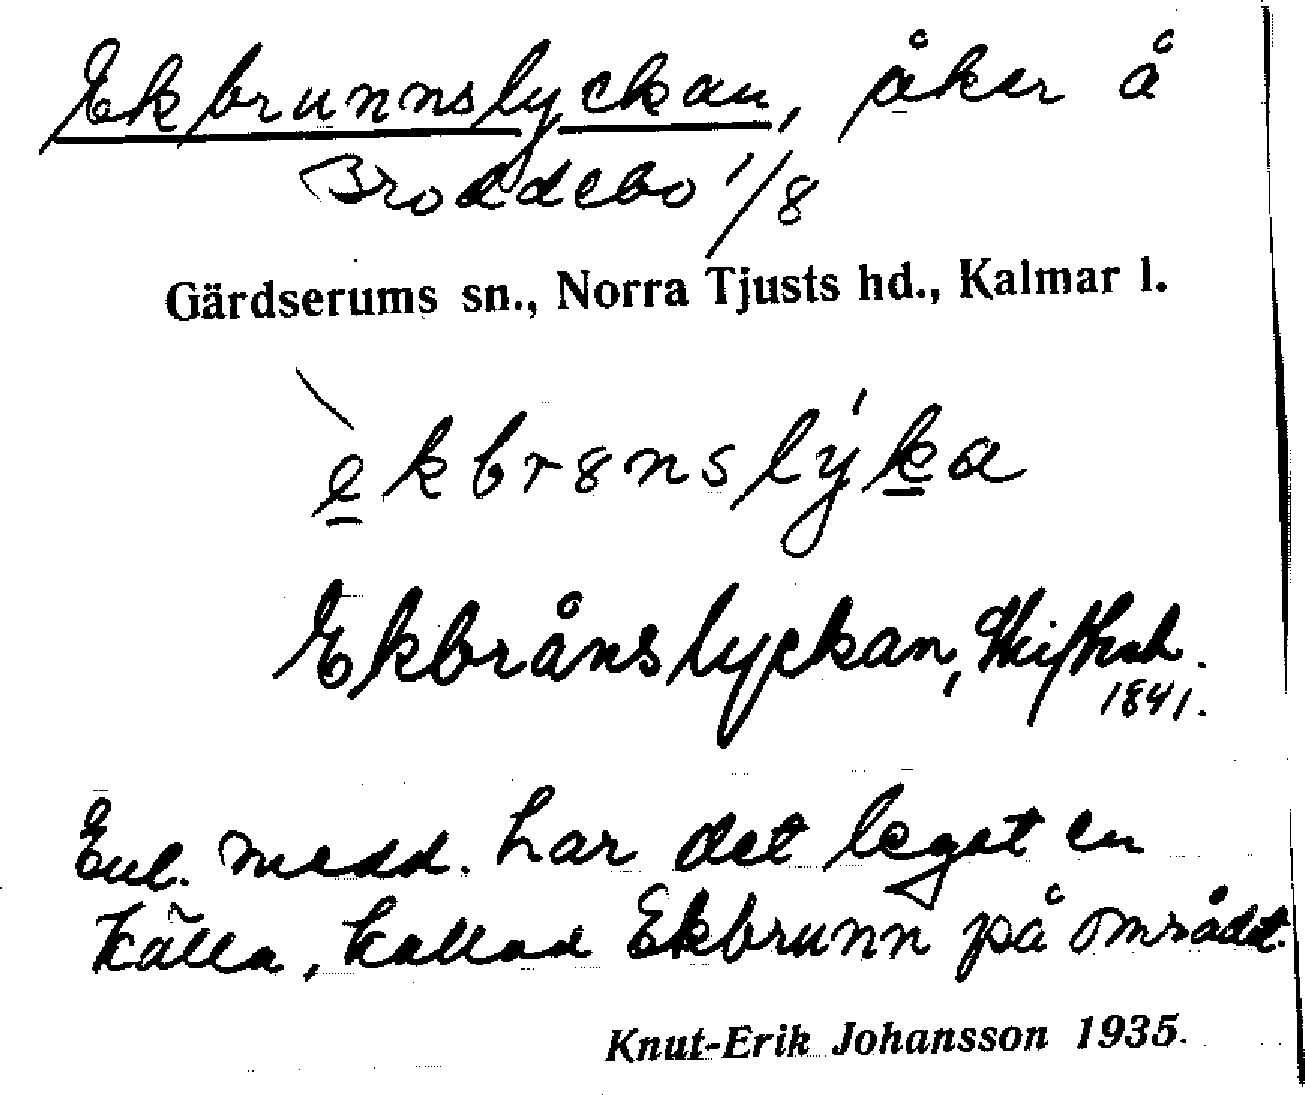 Ekbrunnslyckan, åker å
Broddebo 1/8
Gärdserums sn., Norra Tjusts hd., Kalmar l.
è̲kbrɤnslýk̲a
Ekbrånslyckan, Skiftesh.
1841.
Enl. medd. har det leget en
källa, kallad Ekbrunn på området.
Knut-Erik Johansson 1935.